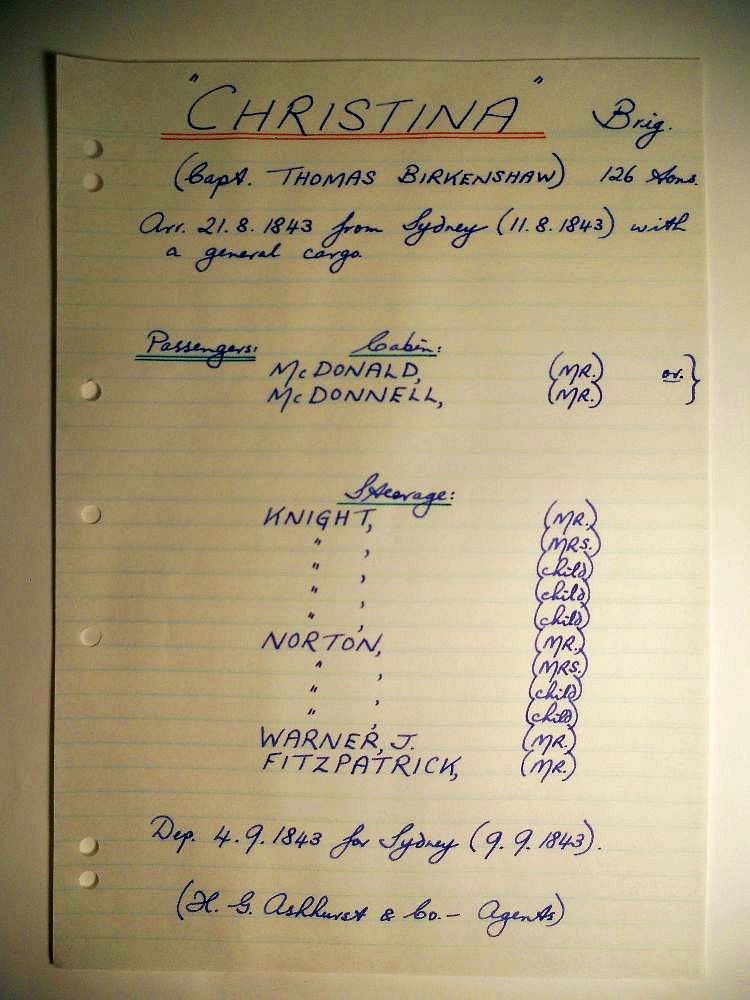 "CHRISTINA" Brig.
(Capt. THOMAS BIRKENSHAW) 126 tons.
Arr. 21.8.1843 from Sydney (11.8.1843) with
a general cargo.
Passengers: Cabin:
McDONALD, (MR.) or. }
McDONNELL, (MR.)
Steerage:
KNIGHT, (MR.)
" , (MRS.)
" , (child)
" , (child)
" , (child)
NORTON, (MR.)
" , (MRS.)
" , (child)
" , (child)
WARNER, J. (MR.)
FITZPATRICK, (MR.)
Dep. 4.9.1843 for Sydney (9.9.1843).
(H. G. Ashhurst & Co. - Agents)